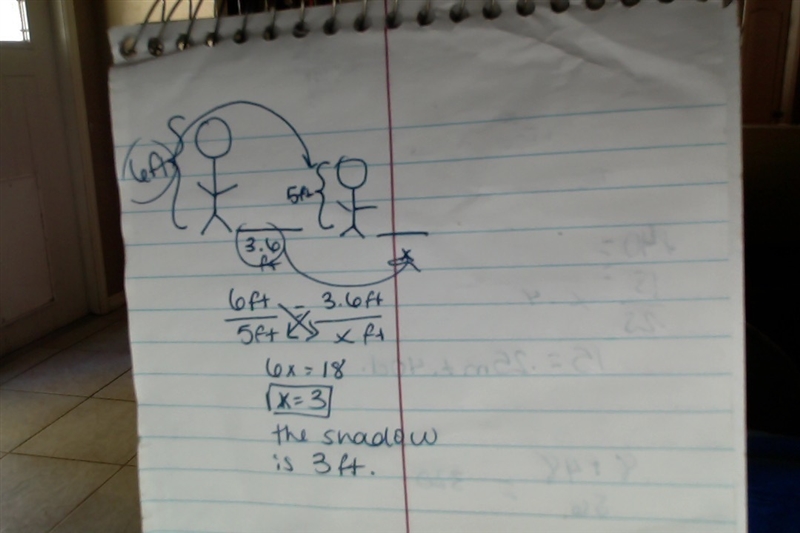 6ft
5ft
3.6 ft
x
6ft = 3.6ft
5ft x ft
6x = 18
x = 3
the shadow
is 3ft.